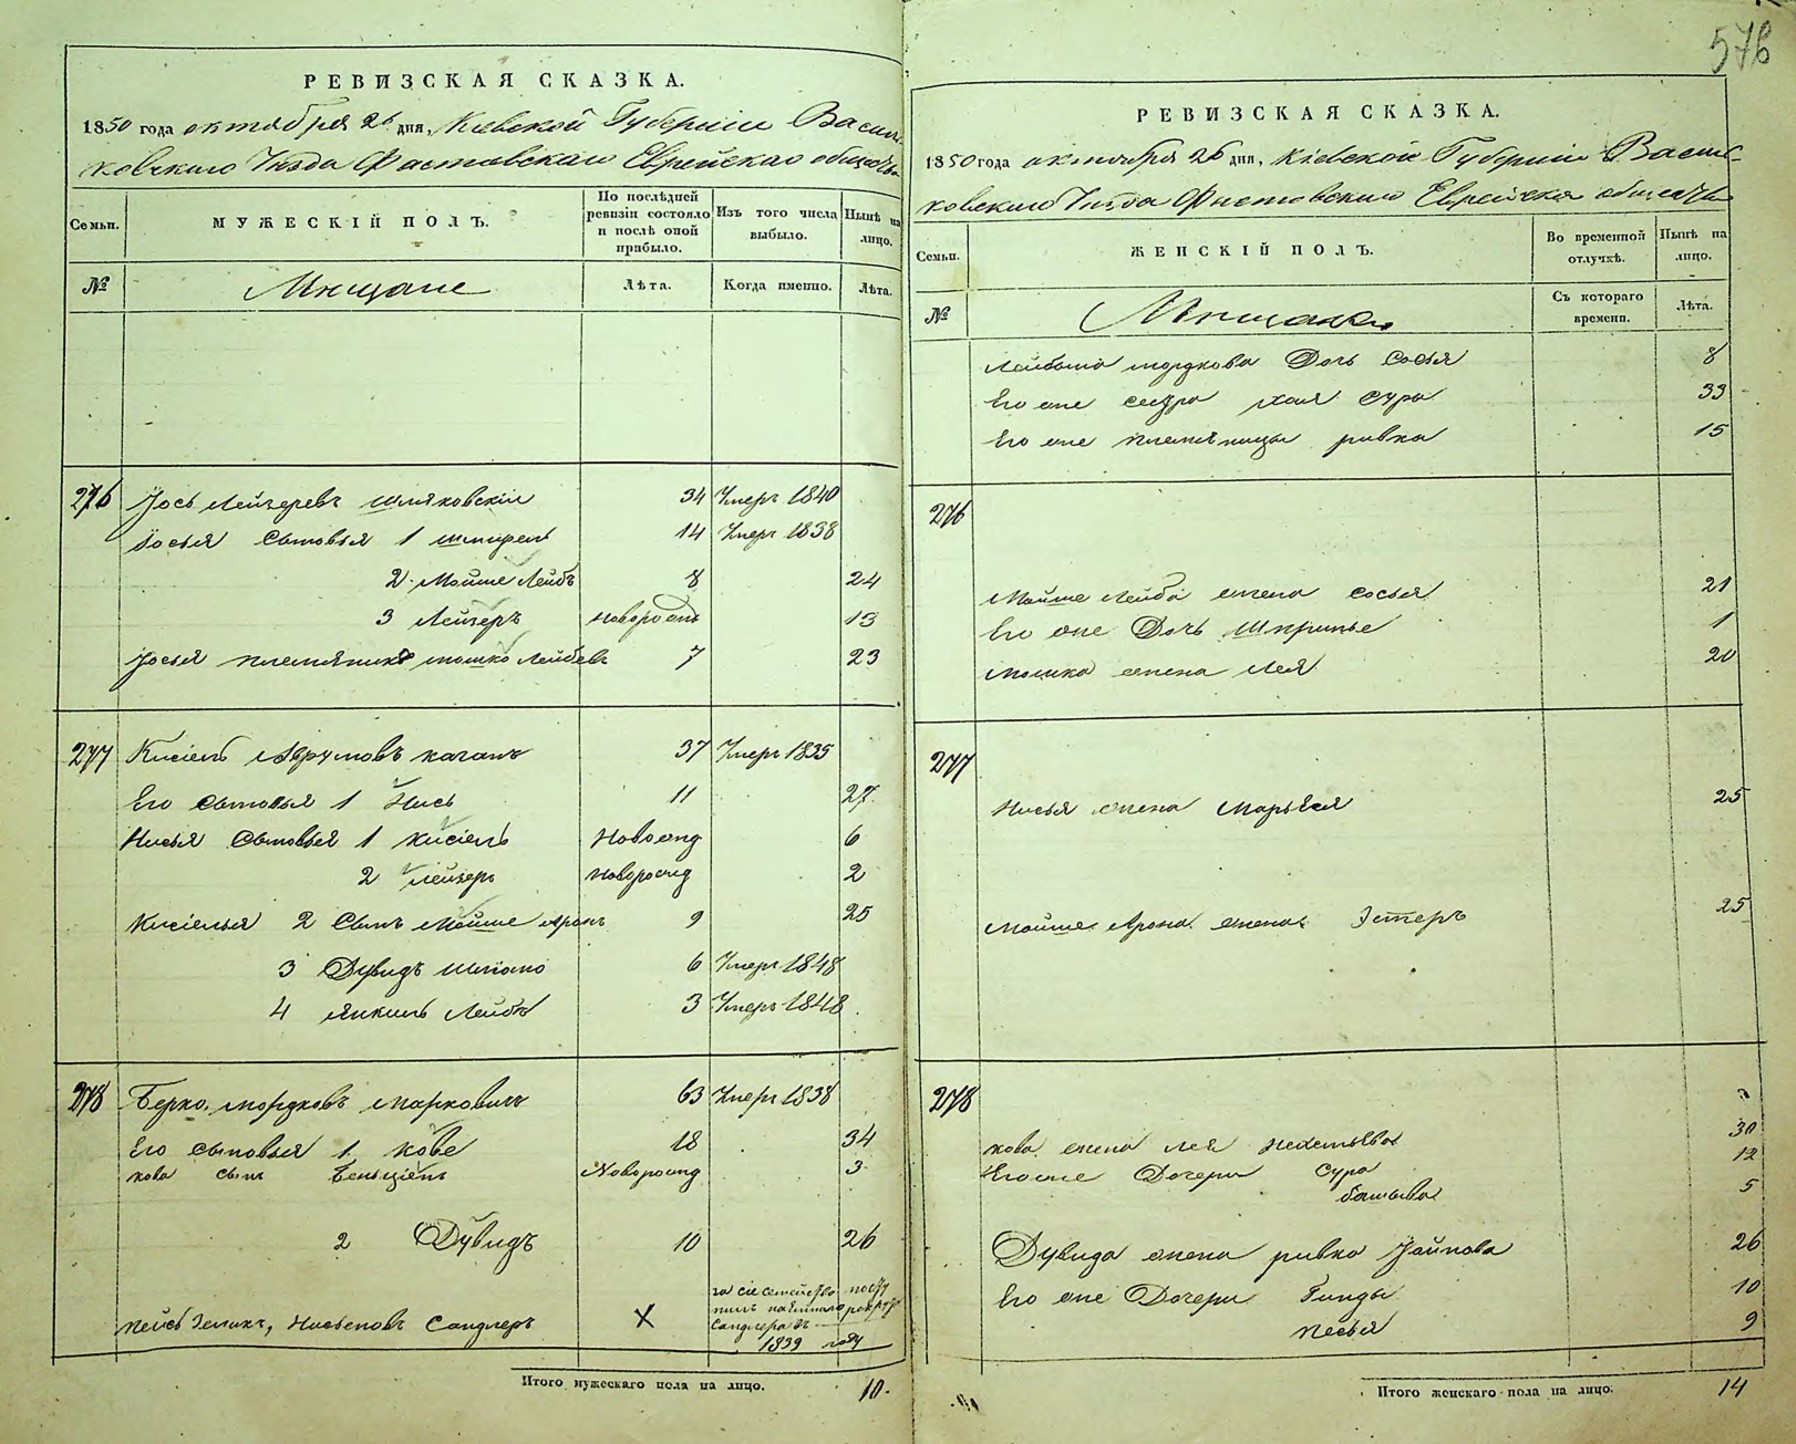 576
РЕВИЗСКАЯ СКАЗКА.
1850 года октября 26 дня, Кіевской Губерніи Василь-
ковскаго Уѣзда Фастовскаго Еврейскаго общества
Семьи. МУЖЕСКІЙ ПОЛЪ. По послѣдней ревизіи состояло и послѣ оной прибыло. Изъ того числа выбыло. Нынѣ на лицо.
№ Мѣщане Лѣта. Когда именно. Лѣта.
276 Іось Лейзеровъ Шляховскій 34 Умеръ 1840
Іосья сыновья 1 14 Умеръ 1838
2 Мойше Лейбъ 8 24
3 Лейзеръ новорожд 13
Іосья племянникъ Мошко Лейбовъ 7 23
277 Кисіель Аврумовъ Каганъ 37 Умеръ 1835
Его сыновья 1 Нись 11 27
Нисья сыновья 1 Кисіель Новорожд 6
2 Лейзеръ новорожд 2
Кисіелья 2 Сынъ Мойше Аронъ 9 25
3 Дувидъ Шліомо 6 Умеръ 1848
4 Янкель Лейбъ 3 Умеръ 1848
278 Берко Мордковъ Марковичъ 63 Умеръ 1838
Его сыновья 1 Кове 18 34
Кова сынъ Бенціенъ Новорожд 3
2 Дувидъ 10 26
Пейсъ Зеликъ, Нисьеновъ Сандлеръ X за сіе семейство посту
пилъ наемнаго рекрут
Сандлера въ
1839 году
Итого мужескаго пола на лицо. 10.
РЕВИЗСКАЯ СКАЗКА.
1850 года октября 26 дня, Кіевской Губерніи Василь-
ковскаго Уѣзда Фастовскаго Еврейскаго общества
Семьи. ЖЕНСКІЙ ПОЛЪ. Во временной отлучкѣ. Нынѣ на лицо.
№ Мѣщанки Съ котораго времени. Лѣта.
Лейбыша Мордкова Дочь Сосья 8
Его же сестра Хая Сура 33
Его же племяница Ривка 15
276
Мойше Лейба жена Сосья 21
Его же Дочь Шпринье 1
Мошка жена Лея 20
277
Нисья жена Марьяся 25
Мойше Арона жена Эстеръ 25
278
Кова жена Лея Нехамьева 30
Его же Дочери Сура 12
башева 5
Дувида жена Ривка Хаймова 26
Его же Дочери Гинды 10
Песья 9
Итого женскаго пола на лицо. 14